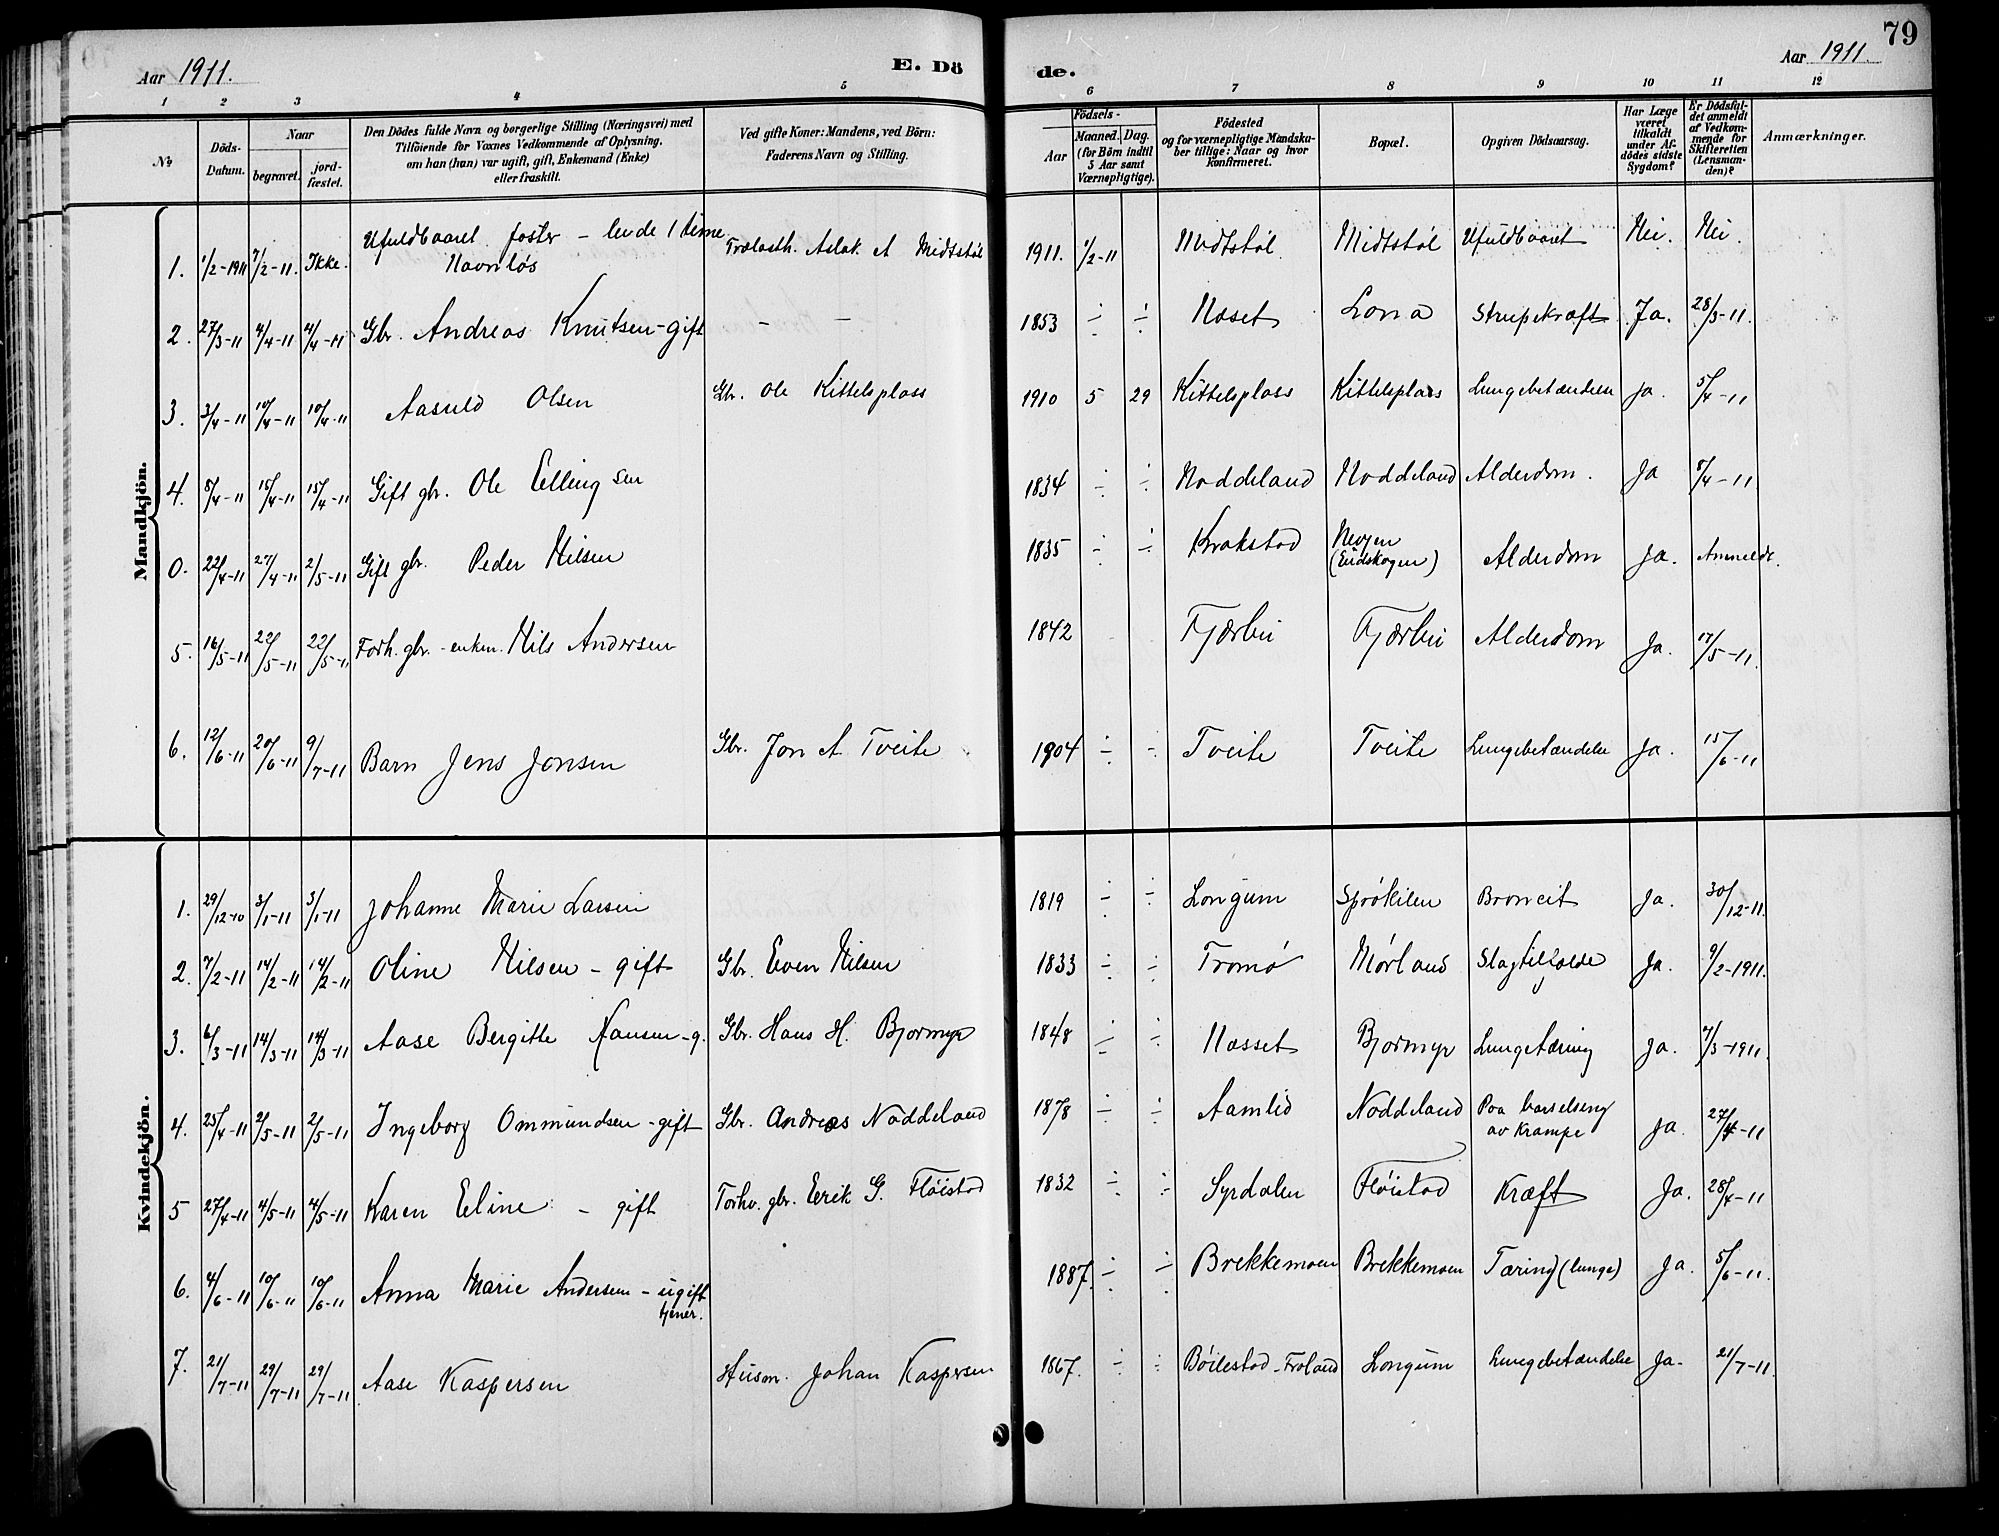 79
Aar 1911. E. Dö de. Aar 1911.
1 2 3 4 5 6 7 8 9 10 11 12
No.
Döds-
Datum.
Naar
begravet.
jord-
fæstet.
Den Dödes fulde Navn og borgerlige Stilling (Næringsvei) med
Tilföiende for Voxnes Vedkommende af Oplysning,
om han (hun) var ugift, gift, Enkemand (Enke)
eller fraskilt.
Ved gifte Koner: Mandens, ved Börn:
Faderens Navn og Stilling.
Födsels-
Aar
Maaned. Dag.
(for Börn indtil
5 Aar samt
Værnepligtige).
Födested
og for værnepligtige Mandska-
ber tillige: Naar og hvor
konfirmeret.
Bopæl.
Opgiven Dödsaarsag.
Har Læge
været
tilkaldt
under Af-
dödes sidste
Sygdom?
Er Dödsfal-
det anmeldt
af Vedkom-
mende for
Skifteretten
(Lensman-
den)?
Anmærkninger.
Mandkjön.
1. 1/2-1911 7/2-11. Ikke. Ufuldbaaret foster - levde 1 time Trælasth. Aslak A Midtstøl 1911. 1/2-11 Midtstøl Midtstøl Ufuldbaaret Nei. Nei.
Navnløs
2. 27/3-11 4/4-11 4/4-11 Gbr. Andreas Knutsen - gift - - 1853 ÷ ÷ Næset Lona Strupekræft Ja. 28/3-11.
3. 3/4-11 10/4-11 10/4-11 Aasuld Olsen Gbr. Ole Kittelsplass 1910 5 29 Kittelsplass Kittelsplass Lungebetændelse ja. 5/4-11
4. 5/4-11 15/4-11 15/4-11 Gift gbr. Ole Ellingsen 1834 ÷ ÷ Noddeland Noddeland Alderdom. Ja 5/4-11.
0. 22/4-11 27/4-11 2/5-11 Gift gbr. Peder Nilsen 1835 ÷ ÷ Krokstad (Eidskogen) Alderdom ja. Anmeldt.
5. 16/5-11 22/5-11 22/5-11 Forh. gbr. - enkem. Nils Andersen 1842 Fjærbu Fjærbu Alderdom Ja. 17/5-11.
6. 12/6-11 20/6-11 9/7-11 Barn Jens Jonsen Gbr. Jon A. Tveite 1904 ÷ ÷ Tveite Tveite Lungebetændelse Ja. 15/6-11
Kvindekjön.
1. 29/12-10 3/1-11 3/1-11 Johanne Marie Larsen 1819 ÷ ÷ Longum Sprøkilen Broncit Ja. 30/12-11.
2. 7/2-11 14/2-11 14/2-11 Oline Nilsen - gift Gbr. Even Nilsen 1833 ÷ ÷ Tromø Mørland Slagtilfælde Ja. 9/2-1911.
3. 6/3-11 14/3-11 14/3-11 Aase Bergitte Hansen - g. Gbr. Hans H. Bjormyr 1848 ÷ ÷ Næsset Bjormyr Lungetæring Ja. 7/3-1911.
4. 25/4-11 2/5-11 2/5-11 Ingeborg Ommundsen - gift Gbr. Andreas Noddeland 1878 ÷ ÷ Aamlid Noddeland Paa barselseng Ja. 27/4-11
av krampe
5 27/4-11 4/5-11 4/5-11 Karen Eline - gift Forhv. gbr. Eerik G. Fløistad 1832 ÷ ÷ Syrdalen Fløistad Kræft Ja. 28/4-11
6. 4/6-11 10/6-11 10/6-11 Anna Marie Andersen - ugift 1887. ÷ ÷ Brekkemoen Brekkemoen Tæring (lunge) Ja. 5/6-11.
tjener.
7. 21/7-11 29/7-11 29/7-11 Aase Kaspersen Husm. Johan Kaspersen 1867. ÷ ÷ Bøilestad - Froland Longum Lungebetændelse Ja. 21/7-11.